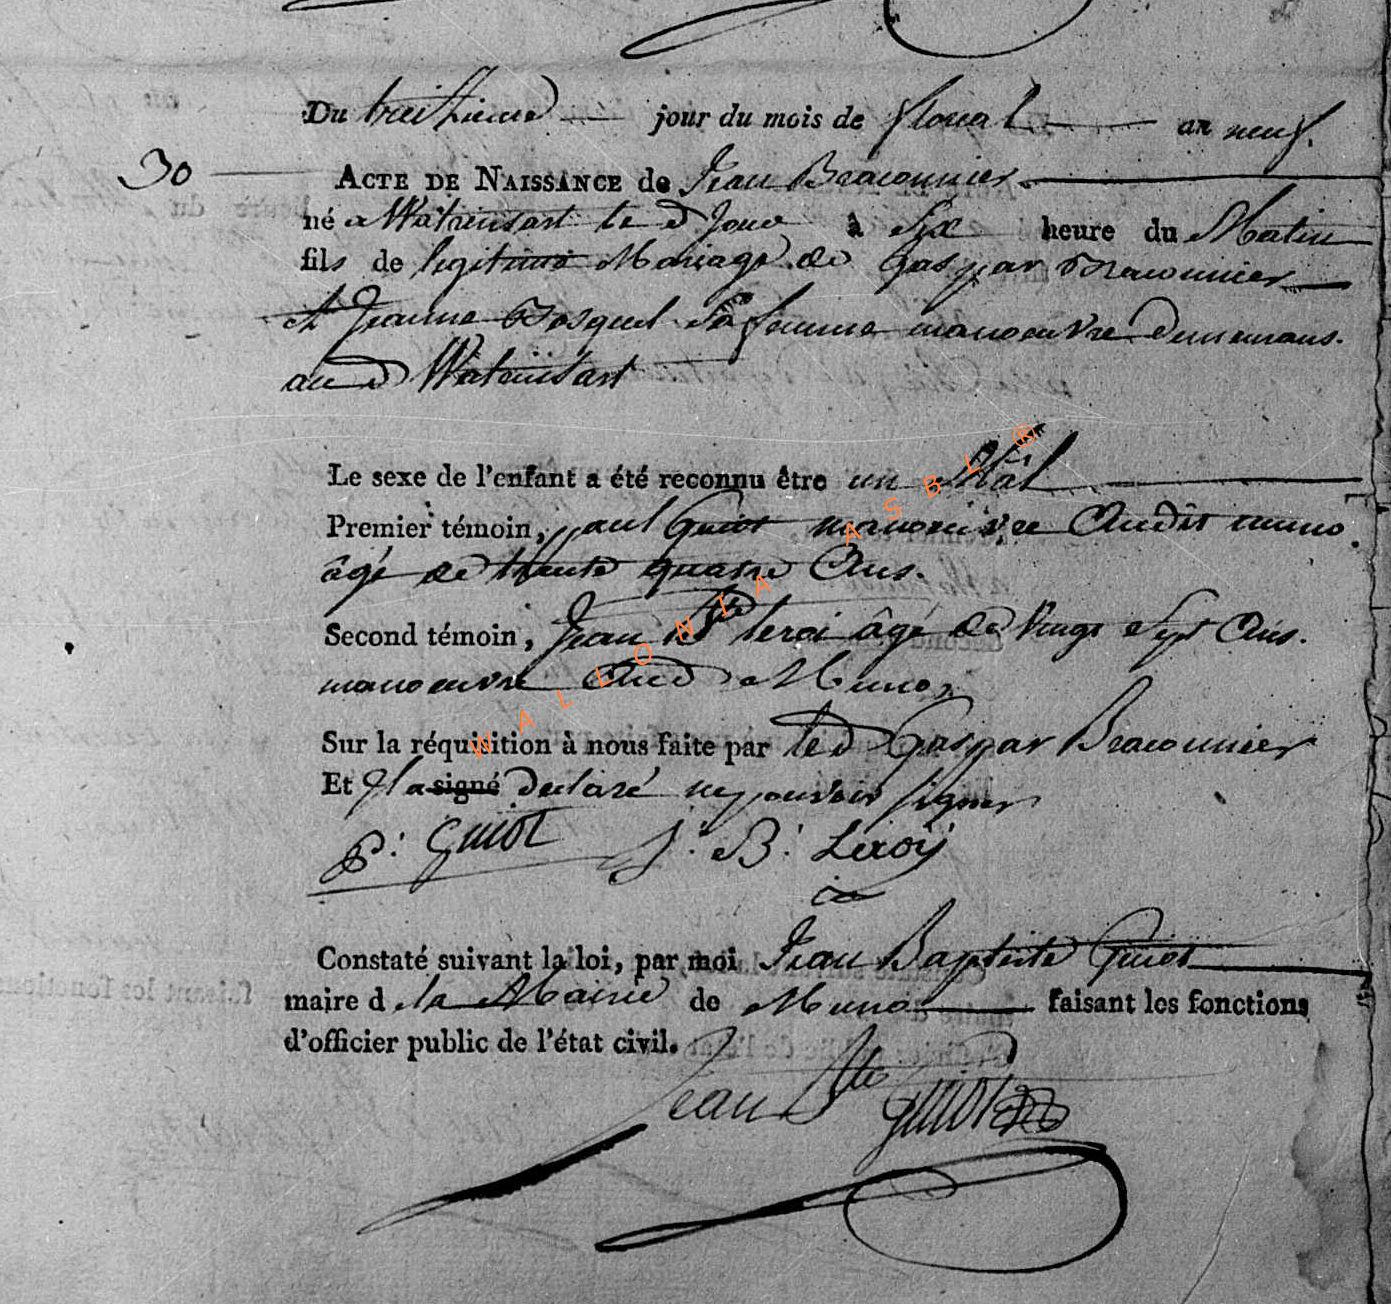 Du treizieme jour du mois de floreal an neuf.
30 ACTE DE NAISSANCE de Jean Braconnier
né a Watrinsart le d Jour à Six heure du Matin
fils de legitime Mariage de Gaspar Braconnier
et Jeanne Bosquel Sa femme manoeuvre demeurans.
au d Watrinsart
Le sexe de l'enfant a été reconnu être un Mâl
Premier témoin, paul Guiot manoeuvre Audit muno
âgé de trente quatre Ans.
Second témoin, Jean Bte leroi âgé de Vingt Sept Ans.
manoeuvre Aud Muno
Sur la réquisition à nous faite par led Gaspar Braconnier
Et Il a signé declaré ne pouvoir signer
P: Guiot J: B: Leroÿ
Constaté suivant la loi, par moi Jean Baptiste Guiot
maire d la Mairie de Muno faisant les fonctions
d'officier public de l'état civil.
Jean Bte guiot
WALLONIA ASBL ®